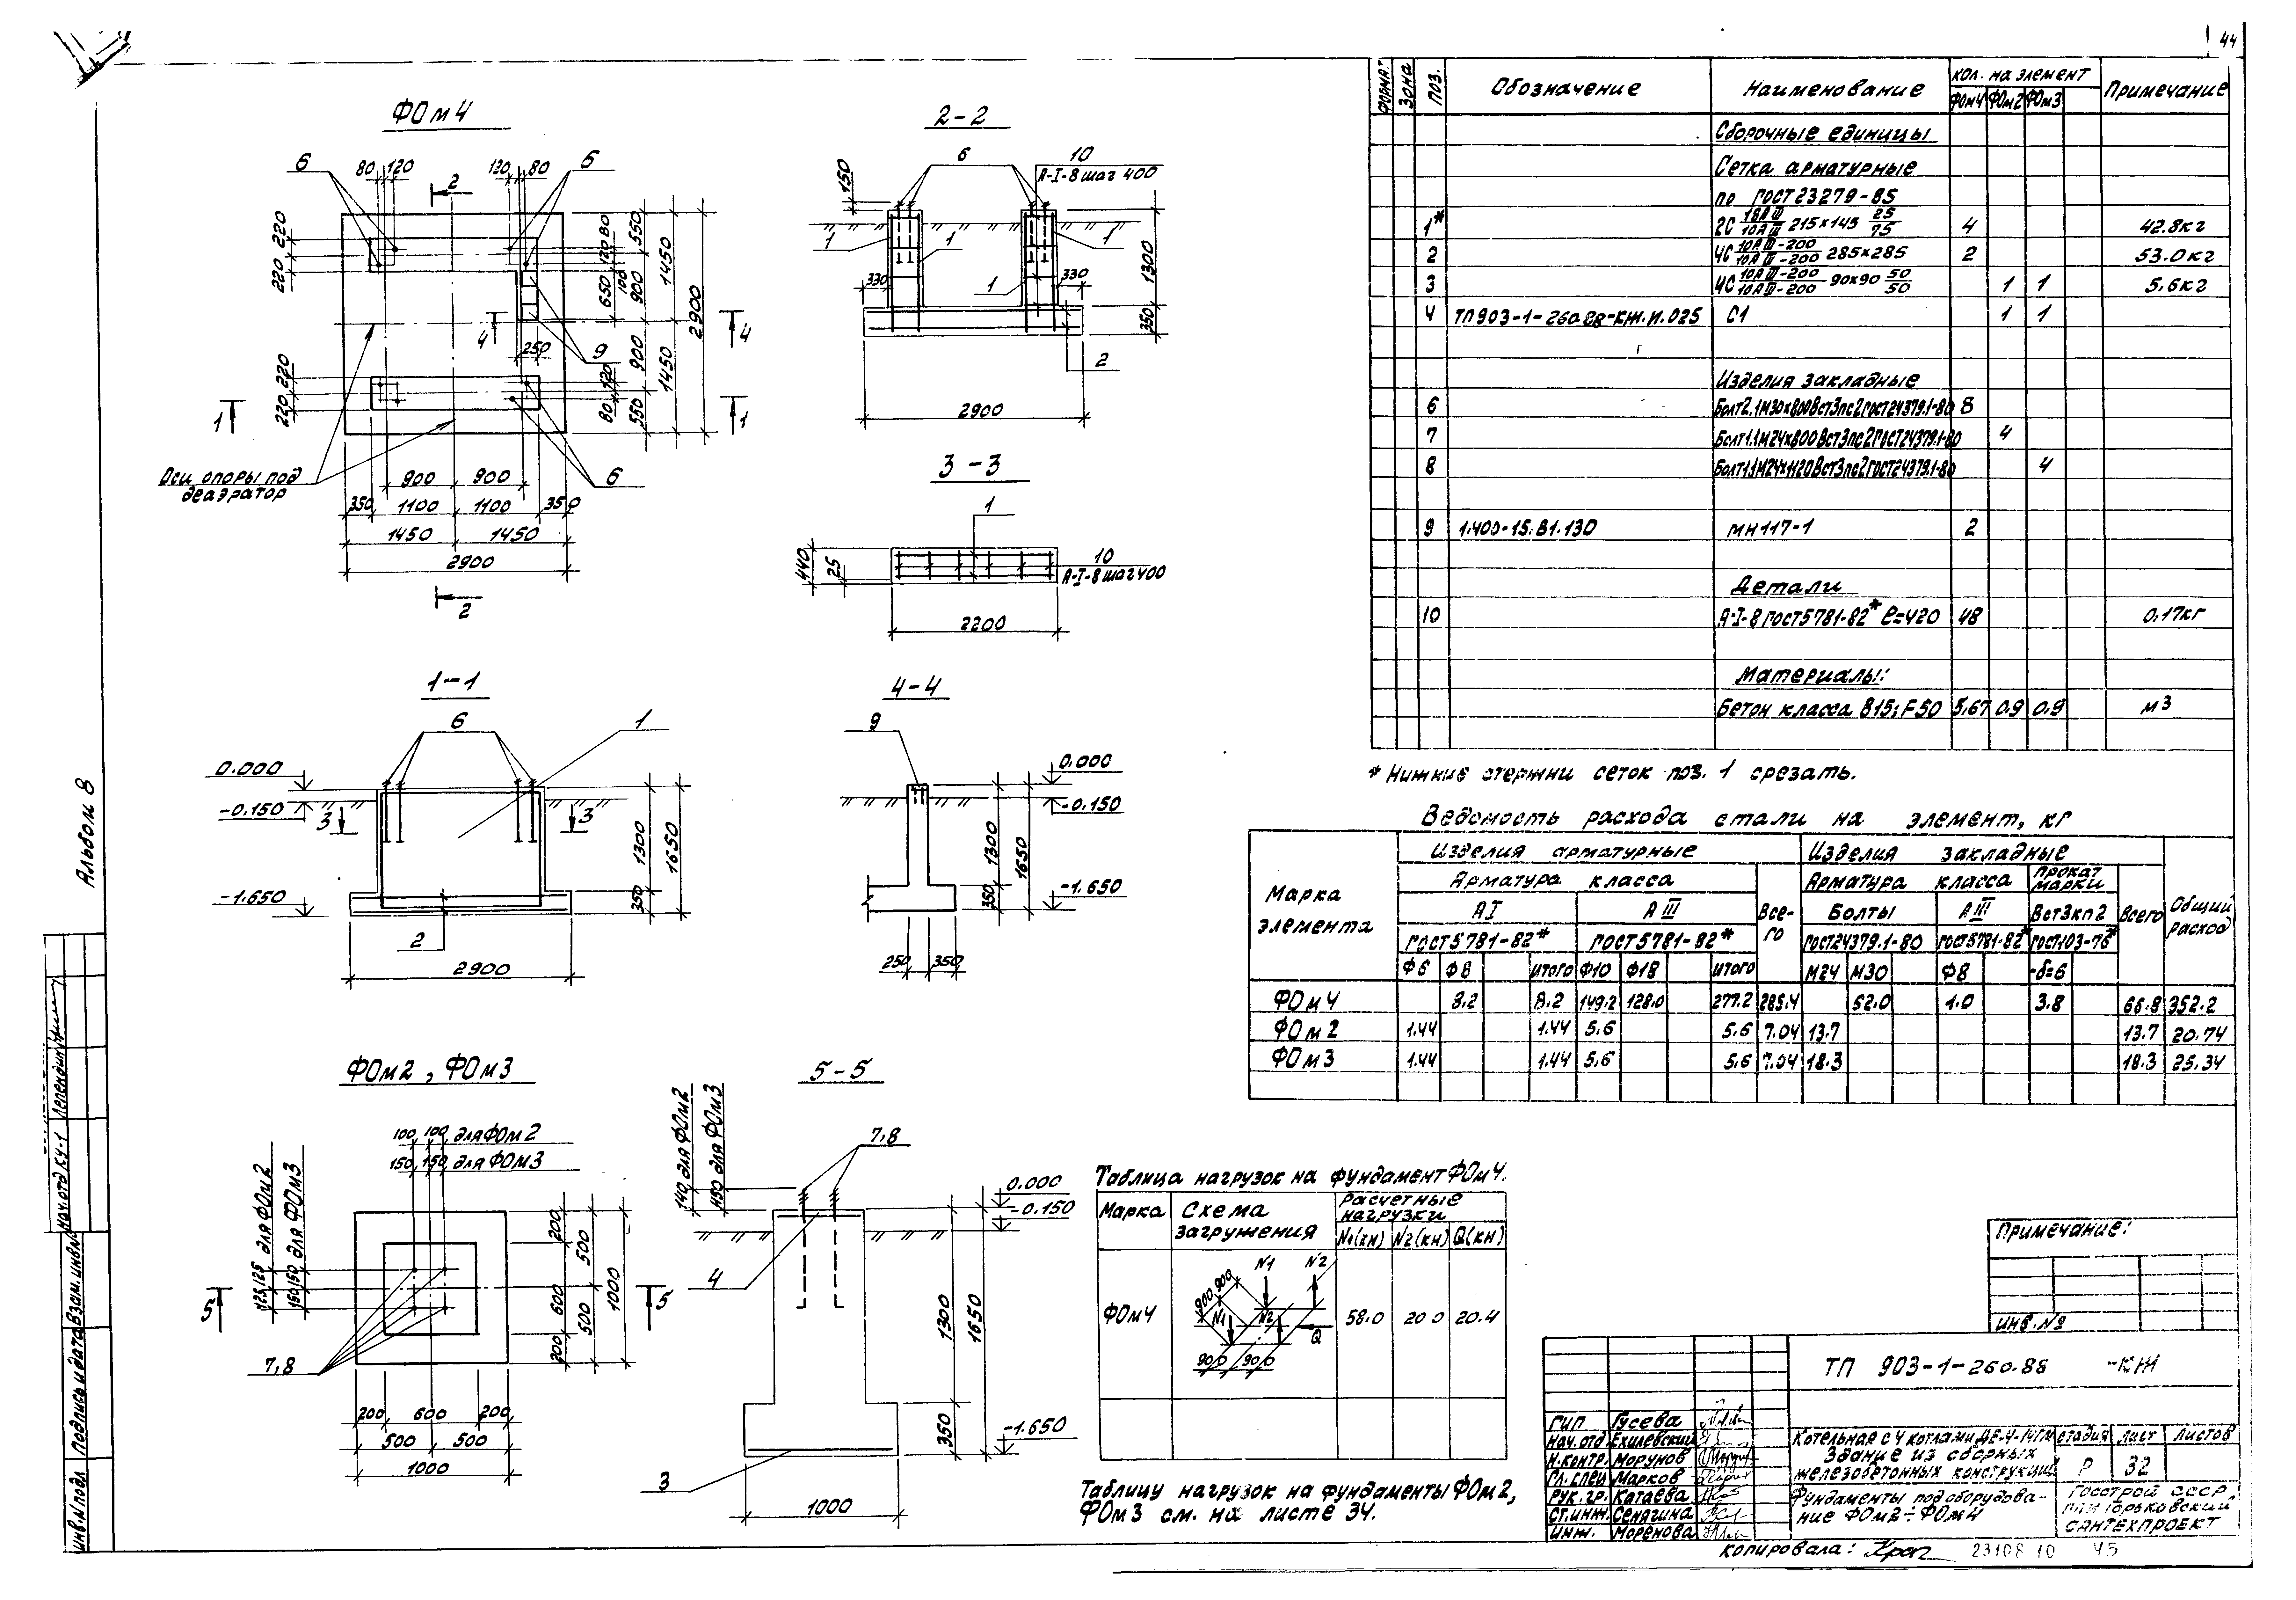 44
ФОм4
6
80
120
120
80
6
2
220
220
120 80
550
650
100
900
1450
2900
4
4
250
9
220
220
120
80
900
550
1450
1
1
Оси опоры под
деаэратор
900
900
6
350
1100
1100
350
1450
1450
2900
2
2-2
6
10
А-I-8 шаг 400
150
1
1
1
330
1
330
1300
350
2
2900
3-3
1
440
25
10
А-I-8 шаг 400
2200
1-1
6
1
0.000
-0.150
3
3
1300
1650
-1.650
350
2
2900
4-4
9
0.000
-0.150
1300
1650
350
-1.650
250
350
ФОм2, ФОм3
100 100 для ФОм2
150 150 для ФОм3
125 125 для ФОм2
150 150 для ФОм3
5
5
200
600
200
500
500
1000
7,8
200
600
200
500
500
1000
5-5
140 для ФОм2
190 для ФОм3
7,8
0.000
-0.150
4
1300
1650
350
-1.650
3
1000
Формат
Зона
Поз.
Обозначение
Наименование
Кол. на элемент
Примечание
ФОм4 ФОм2 ФОм3
Сборочные единицы
Сетка арматурные
по ГОСТ 23279-85
1* 2С 18АIII/10АIII 215х145 25/75 4 42.8кг
2 4С 10АIII-200/10АIII-200 285х285 2 53.0кг
3 4С 10АIII-200/10АIII-200 90х90 50/50 1 1 5.6кг
4 ТП903-1-260.88-КЖ.И.025 С1 1 1
Изделия закладные
6 Болт2.1М30х800ВСт3пс2ГОСТ24379.1-80 8
7 Болт1.1М24х800ВСт3пс2ГОСТ24379.1-80 4
8 Болт1.1М24х1120ВСт3пс2ГОСТ24379.1-80 4
9 1.400-15.В1.130 МН117-1 2
Детали
10 А-I-8 ГОСТ5781-82* ℓ=420 48 0.17кг
Материалы:
Бетон класса В15; F50 5,67 0.9 0.9 м3
* Нижние стержни сеток поз. 1 срезать.
Ведомость расхода стали на элемент, кг
Марка элемента
Изделия арматурные
Изделия закладные
Общий расход
Арматура класса
Всего
Арматура класса
Прокат марки
Всего
АI
АIII
Болты
АIII
Вст3кп2
ГОСТ5781-82*
ГОСТ5781-82*
ГОСТ24379.1-80
ГОСТ5781-82*
ГОСТ103-76*
Ф6 Ф8 итого Ф10 Ф18 итого М24 М30 Ф8 -δ=6
ФОм4 8.2 8.2 149.2 128.0 277.2 285.4 62.0 1.0 3.8 66.8 352.2
ФОм2 1.44 1.44 5.6 5.6 7.04 13.7 13.7 20.74
ФОм3 1.44 1.44 5.6 5.6 7.04 18.3 18.3 25.34
Таблица нагрузок на фундамент ФОм4.
Марка
Схема загружения
Расчетные нагрузки
N1(кн) N2(кн) Q(кн)
ФОм4
N1
N2
900 900
N1
N2
Q
900 900
58.0 20.0 20.4
Таблицу нагрузок на фундаменты ФОм2,
ФОм3 см. на листе 34.
Примечание:
инв.№
ТП 903-1-260.88 -КЖ
ГИП Гусева
Нач.отд.
Н.контр. Морунов
Гл.спец Марков
Рук.гр. Катаева
Ст.инж. Сенягина
Инж. Моренова
Котельная с 4 котлами ДЕ-4-14ГМ
Здание из сборных
железобетонных конструкций
Стадия Лист Листов
Р 32
Фундаменты под оборудова-
ние ФОм2÷ФОм4
Госстрой СССР
Горьковский
Сантехпроект
Копировала:
23108 10 45
Альбом 8
Нач.отд КЧ-1
Взам.инв.№
Подпись и дата
Инв.№ подл